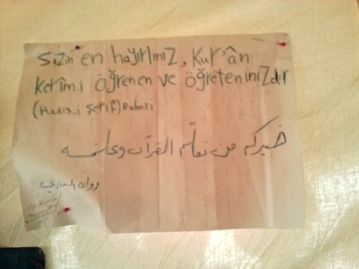 Sizin en hayırlınız, Kur'ân
Kerîmi öğrenen ve öğreteninizdir
(Hadis-i Şerif) Buhari
خيركم من تعلم القرآن وعلمه
رواه البخاري